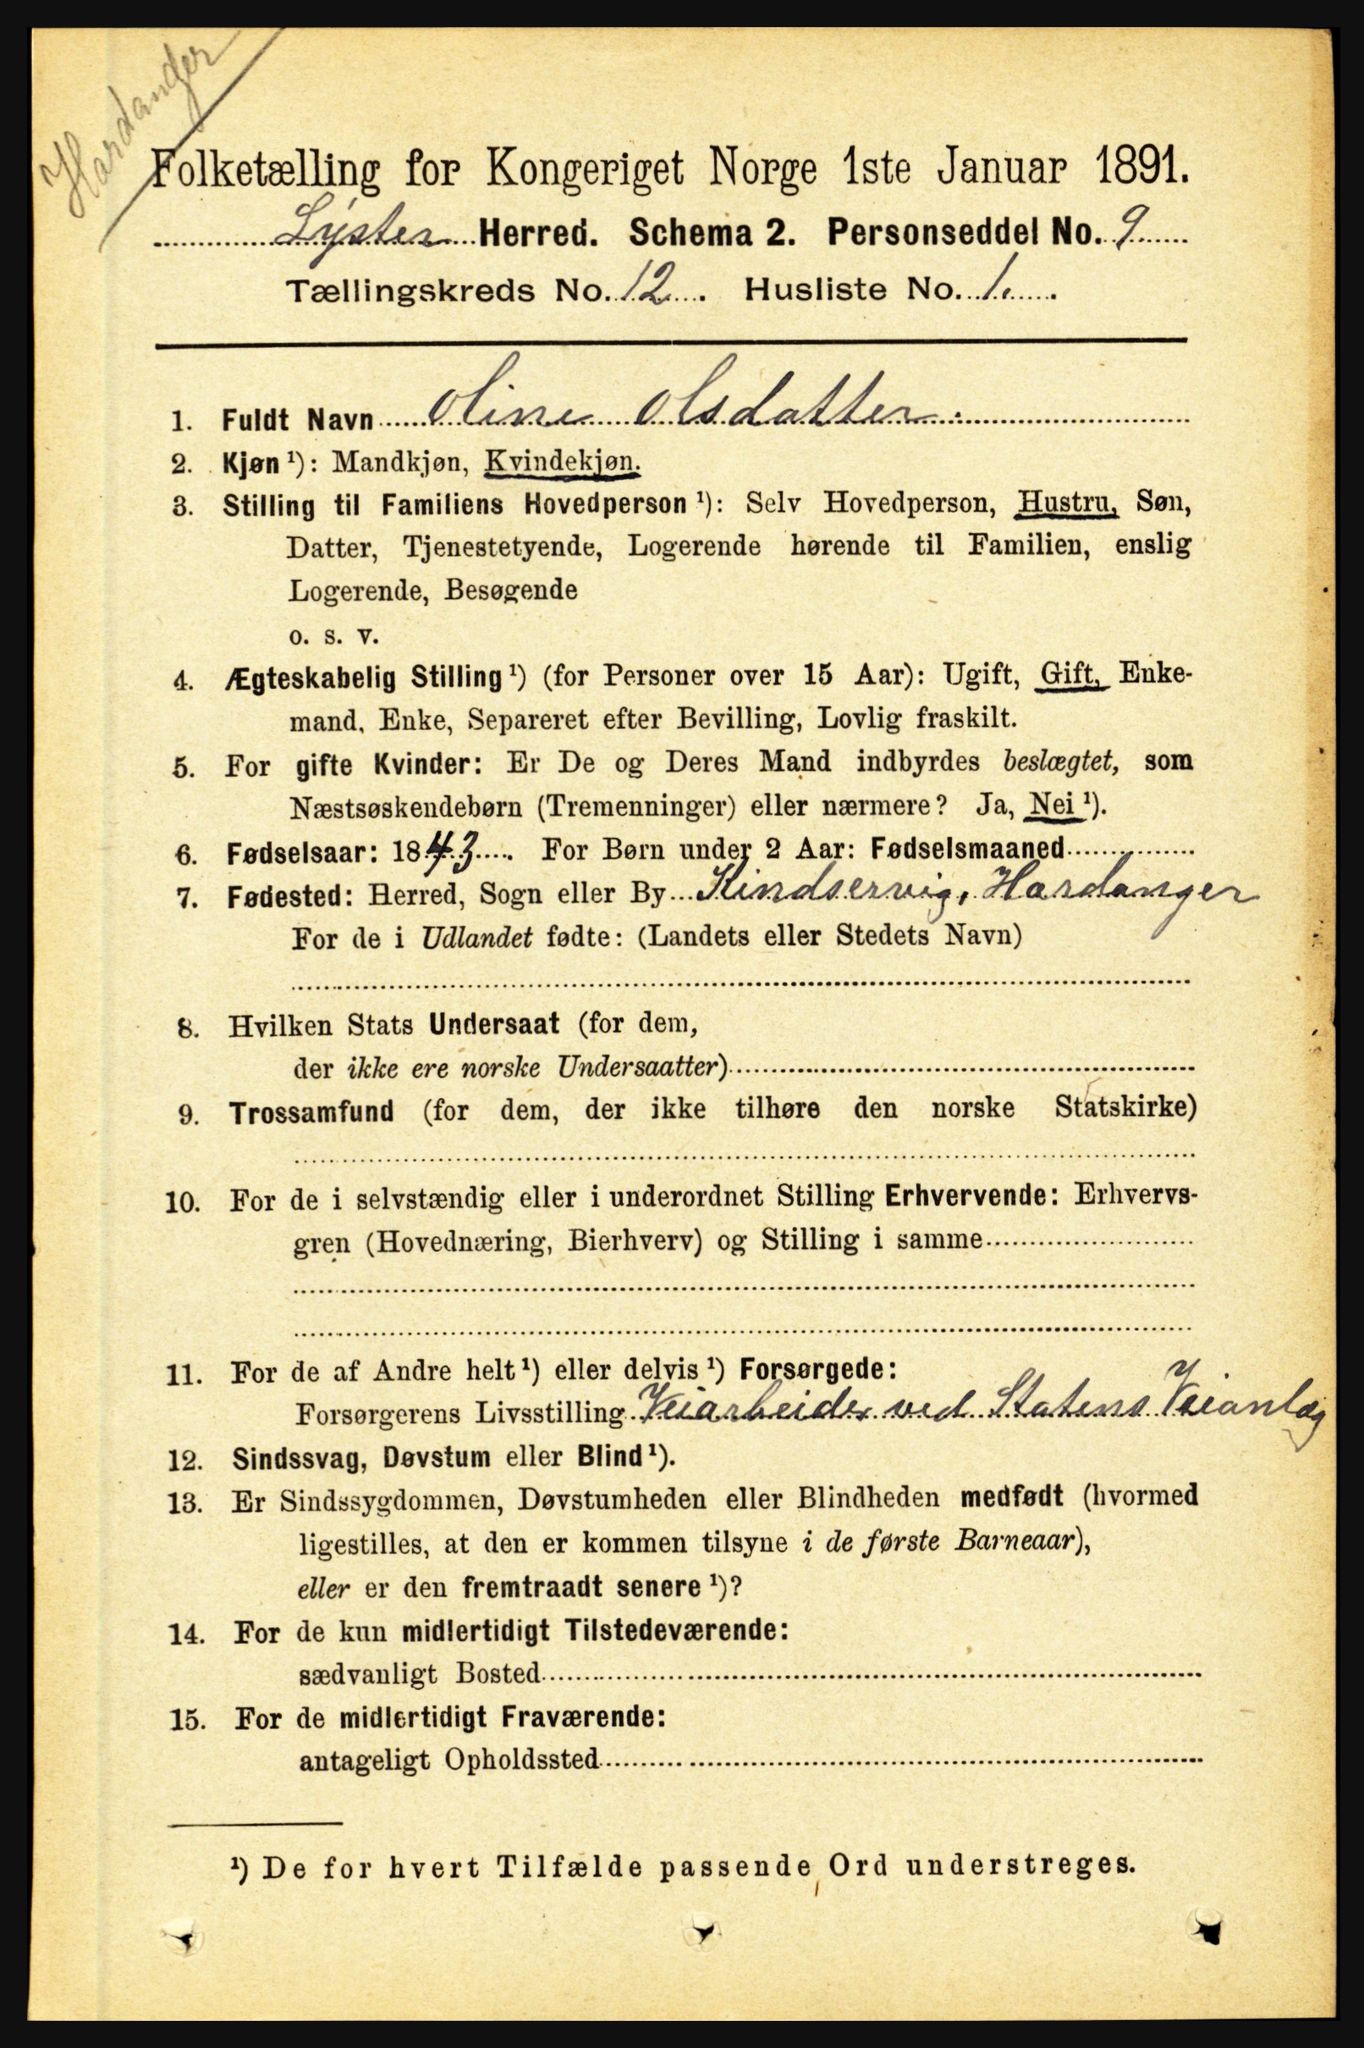 Hardanger
Folketælling for Kongeriget Norge 1ste Januar 1891.
Lyster Herred. Schema 2. Personseddel No. 9
Tællingskreds No. 12. Husliste No. 1.
1. Fuldt Navn Oline Olsdatter.
2. Kjøn ¹): Mandkjøn, Kvindekjøn.
3. Stilling til Familiens Hovedperson ¹): Selv Hovedperson, Hustru, Søn,
Datter, Tjenestetyende, Logerende hørende til Familien, enslig
Logerende, Besøgende
o. s. v.
4. Ægteskabelig Stilling ¹) (for Personer over 15 Aar): Ugift, Gift, Enke-
mand, Enke, Separeret efter Bevilling, Lovlig fraskilt.
5. For gifte Kvinder: Er De og Deres Mand indbyrdes beslægtet, som
Næstsøskendebørn (Tremenninger) eller nærmere? Ja, Nei ¹).
6. Fødselsaar: 1843. For Børn under 2 Aar: Fødselsmaaned
7. Fødested: Herred, Sogn eller By Kindservig, Hardanger
For de i Udlandet fødte: (Landets eller Stedets Navn)
8. Hvilken Stats Undersaat (for dem,
der ikke ere norske Undersaatter)
9. Trossamfund (for dem, der ikke tilhøre den norske Statskirke)
10. For de i selvstændig eller i underordnet Stilling Erhvervende: Erhvervs-
gren (Hovednæring, Bierhverv) og Stilling i samme
11. For de af Andre helt ¹) eller delvis ¹) Forsørgede:
Forsørgerens Livsstilling Veiarbeider ved Statens Veianlæg
12. Sindssvag, Døvstum eller Blind ¹).
13. Er Sindssygdommen, Døvstumheden eller Blindheden medfødt (hvormed
ligestilles, at den er kommen tilsyne i de første Barneaar),
eller er den fremtraadt senere ¹)?
14. For de kun midlertidigt Tilstedeværende:
sædvanligt Bosted
15. For de midlertidigt Fraværende:
antageligt Opholdssted
¹) De for hvert Tilfælde passende Ord understreges.